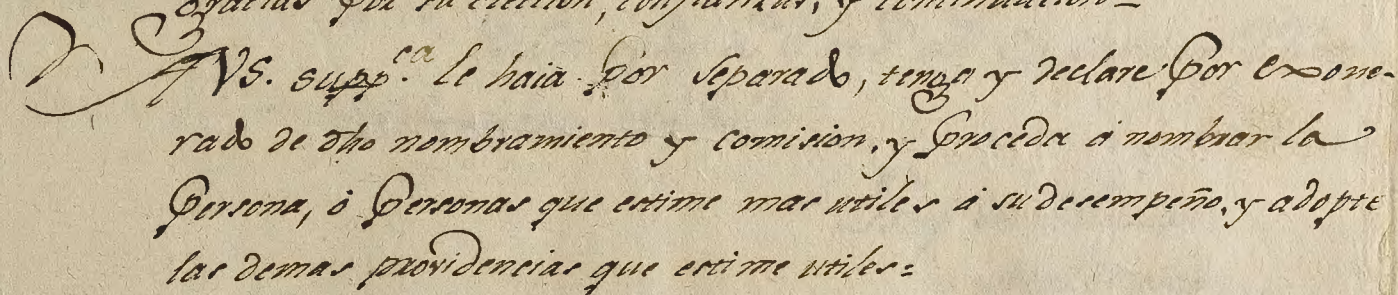 gracias por su eleccion, confianzas, y continuacion=
A VS. supp.ca le haia por separado, tenga y declare por exone-
rado de dho nombramiento y comision, y proceda á nombrar la
Persona, ó Personas que estime mas utiles á su desempeño, y adopte
las demas providencias que estime utiles=